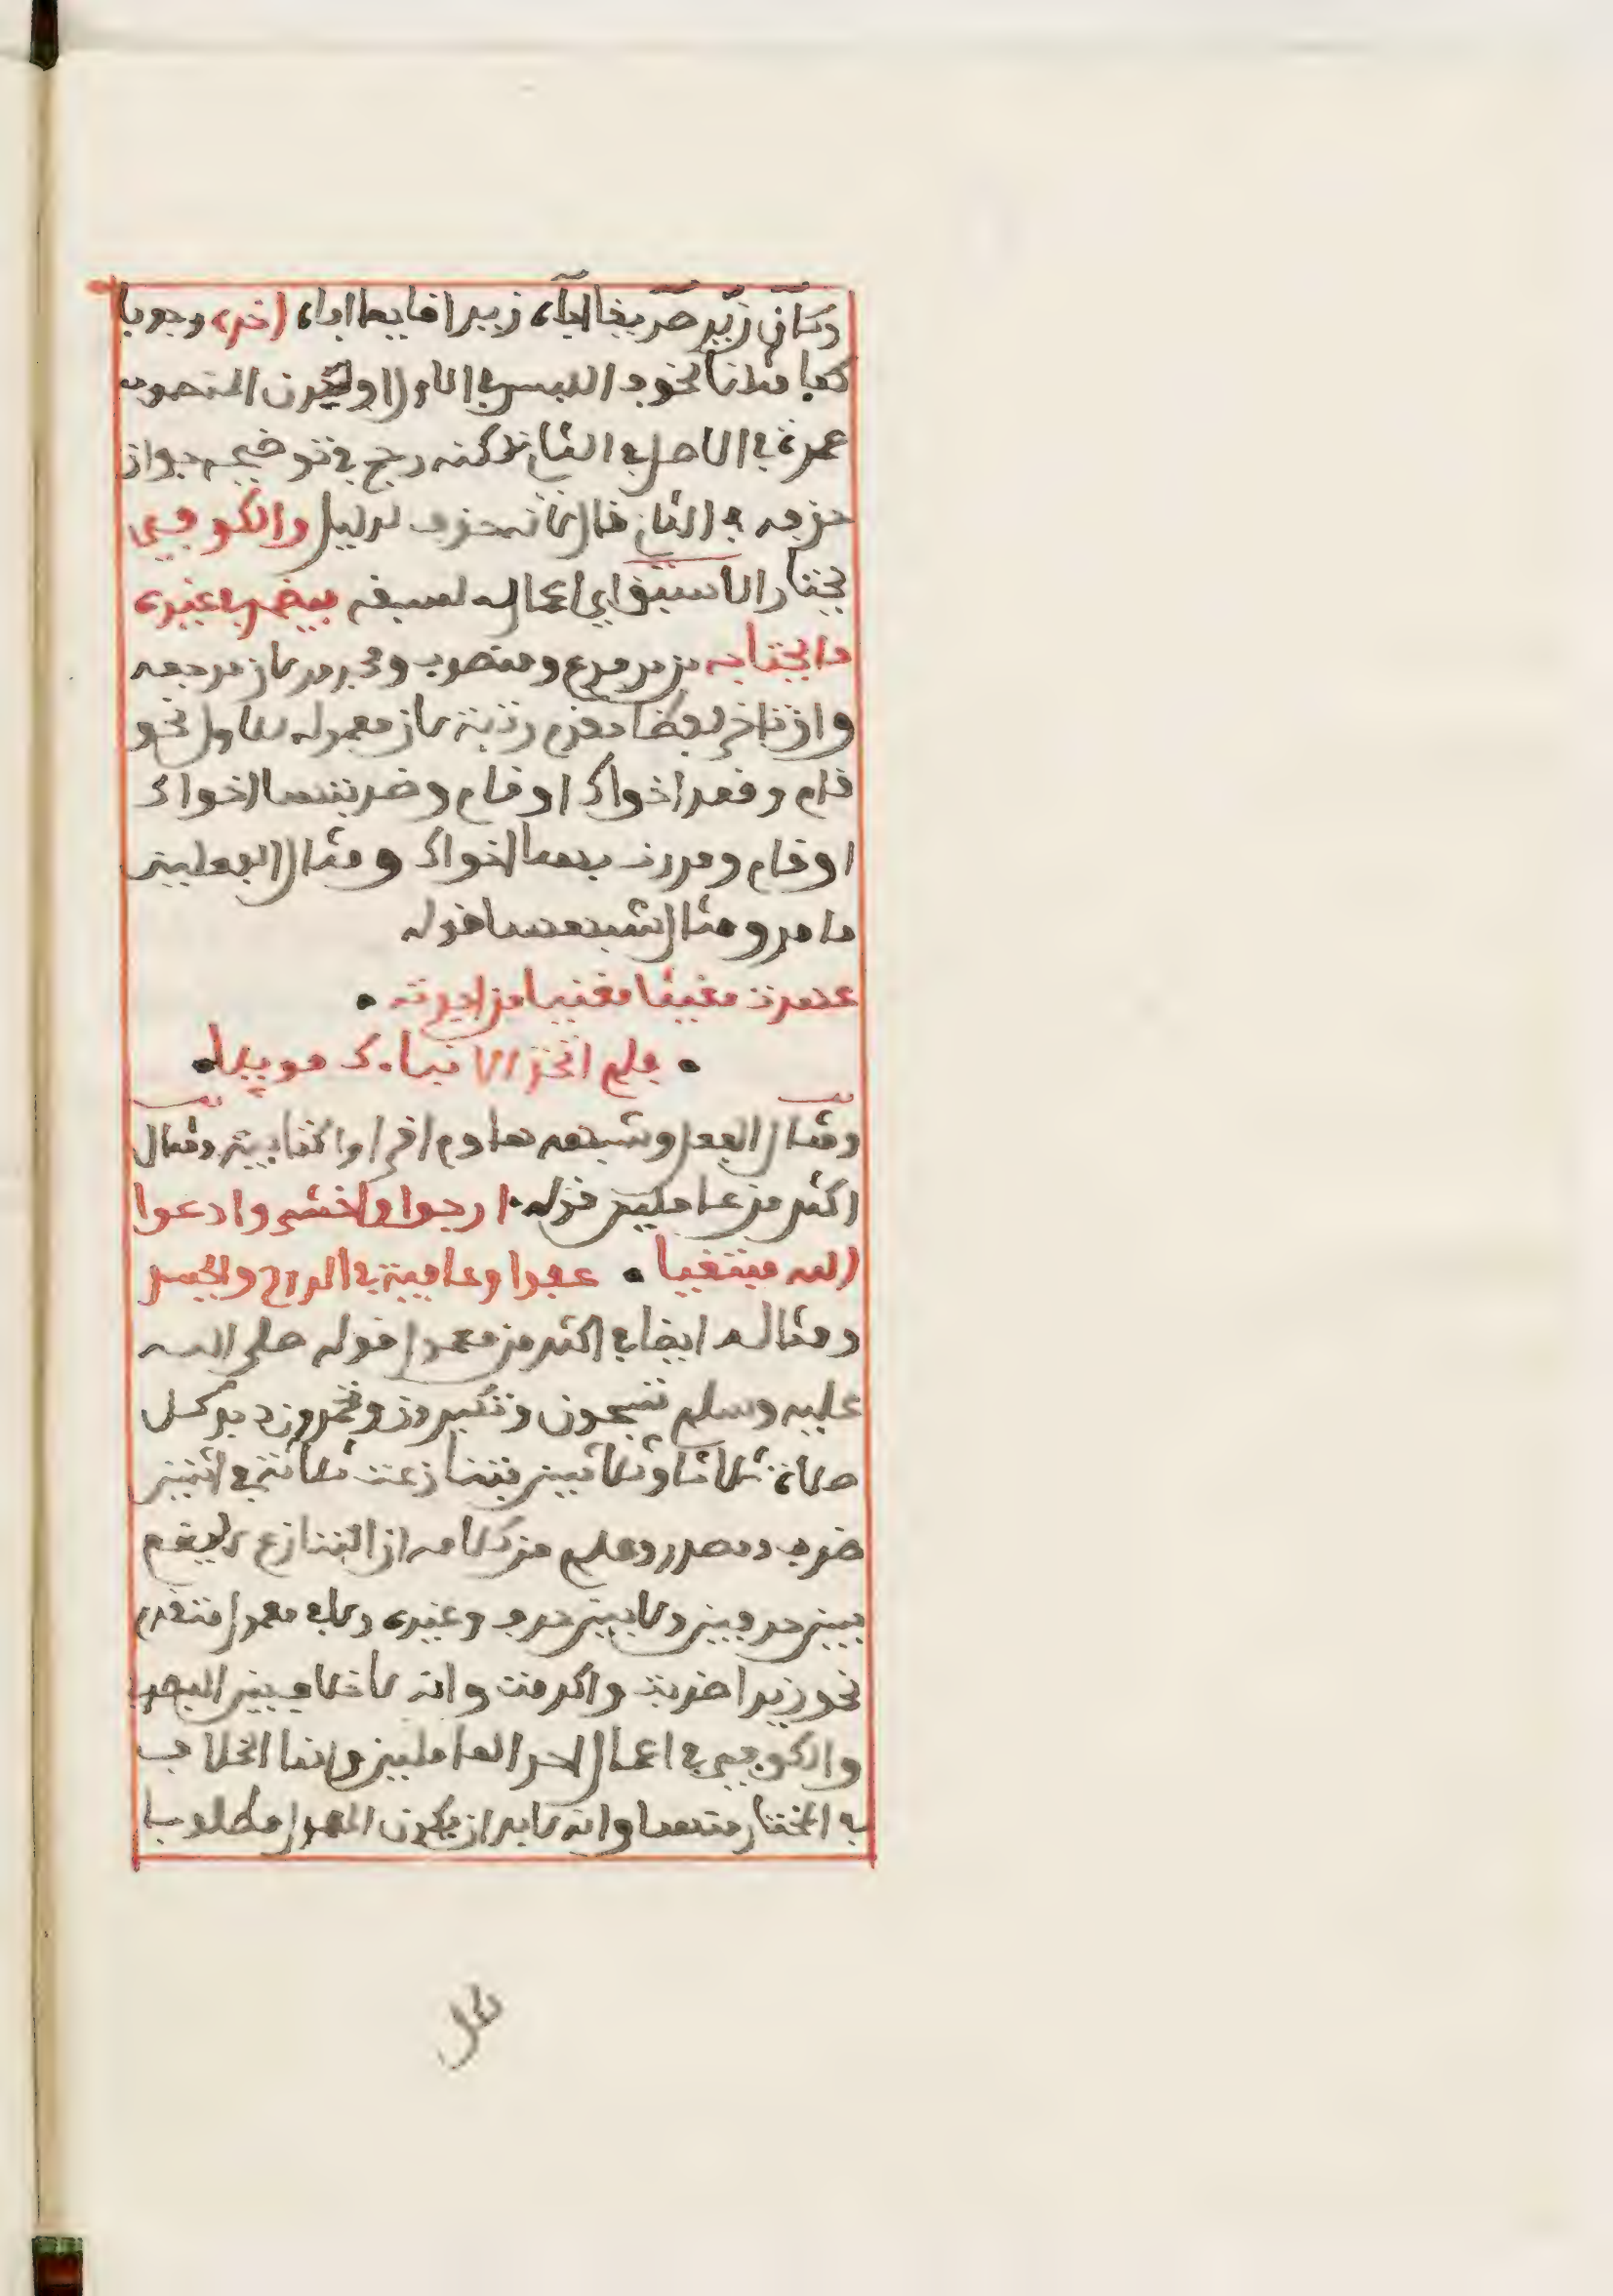 وكان زيد صديقا اياه زيدا قايما اياه اخره وجوبا
كما مثلنا لخوف اللبس في الاول ولكون المنصوب
عمدة في الاصل في الثاني لكنه رجح في توضيحه جواز
حذفه في الثاني قال لانه حذف لدليل والكوفي
يختار الاسبق اي اعماله لسبقه فيضمر في غيره
ما يحتاجه من مرفوع ومنصوب ومجرور لان مرجعه
وان تاخر لفظا مقدم رتبة لانه معمول للاول نحو
قام وقعدا اخواك او قام وضربتهما اخواك
او قام ومررت بهما اخواك ومثال الفعلين
ما مر ومثال شبههما قوله
عهدت مغيثا مغنيا من اجرته •
• فلم اتخذ الا فناءك موئلا •
ومثال الفعل وشبهه هاؤم اقرءوا كتابيه ومثال
اكثر من عاملين قوله • ارجوا واخشى وادعوا
الله مبتغيا • عفوا وعافية في الروح والجسد
ومثاله ايضا في اكثر من معمول قوله صلى الله
عليه وسلم تسبحون وتكبرون وتحمدون دبر كل
صلاة ثلاثا وثلاثين فتنازعت ثلاثة في اثنين
ظرف ومصدر وعلم من كلامه ان التنازع لا يقع
بين حرفين ولا بين حرف وغيره ولا في معمول متقدم
نحو زيدا ضربت واكرمت وانه لا خلاف بين البصري
والكوفي في اعمال احد العاملين وانما الخلاف
في المختار منهما وانه لا بد ان يكون المعمول مطلوبا